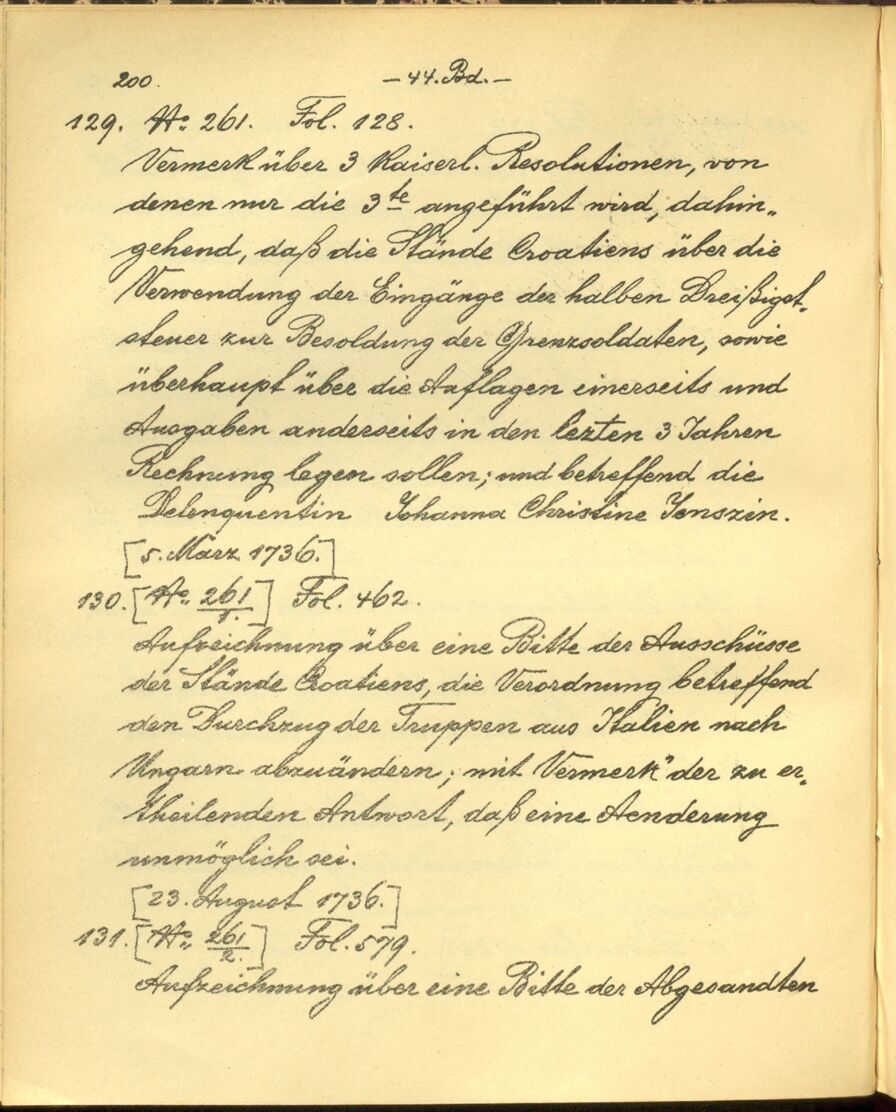 200.
— 44. Bd. —
129. No. 261. Fol. 128.
Vermerk über 3 Kaiserl. Resolutionen, von
denen nur die 3te angeführt wird, dahin„
gehend, daß die Stände Croatiens über die
Verwendung der Eingänge der halben Dreißigst„
steuer zur Besoldung der Grenzsoldaten, sowie
überhaupt über die Auflagen einerseits und
Ausgaben anderseits in den lezten 3 Jahren
Rechnung legen sollen; und betreffend die
Delenquentin Johanna Christine Jenszin.
[5. März 1736.]
130. [No. 261/1.] Fol. 462.
Aufzeichnung über eine Bitte der Ausschüsse
der Stände Croatiens, die Verordnung betreffend
den Durchzug der Truppen aus Italien nach
Ungarn abzuändern; mit Vermerk der zu er„
theilenden Antwort, daß eine Aenderung
unmöglich sei.
[23. August 1736.]
131. [No. 261/2.] Fol. 579.
Aufzeichnung über eine Bitte der Abgesandten